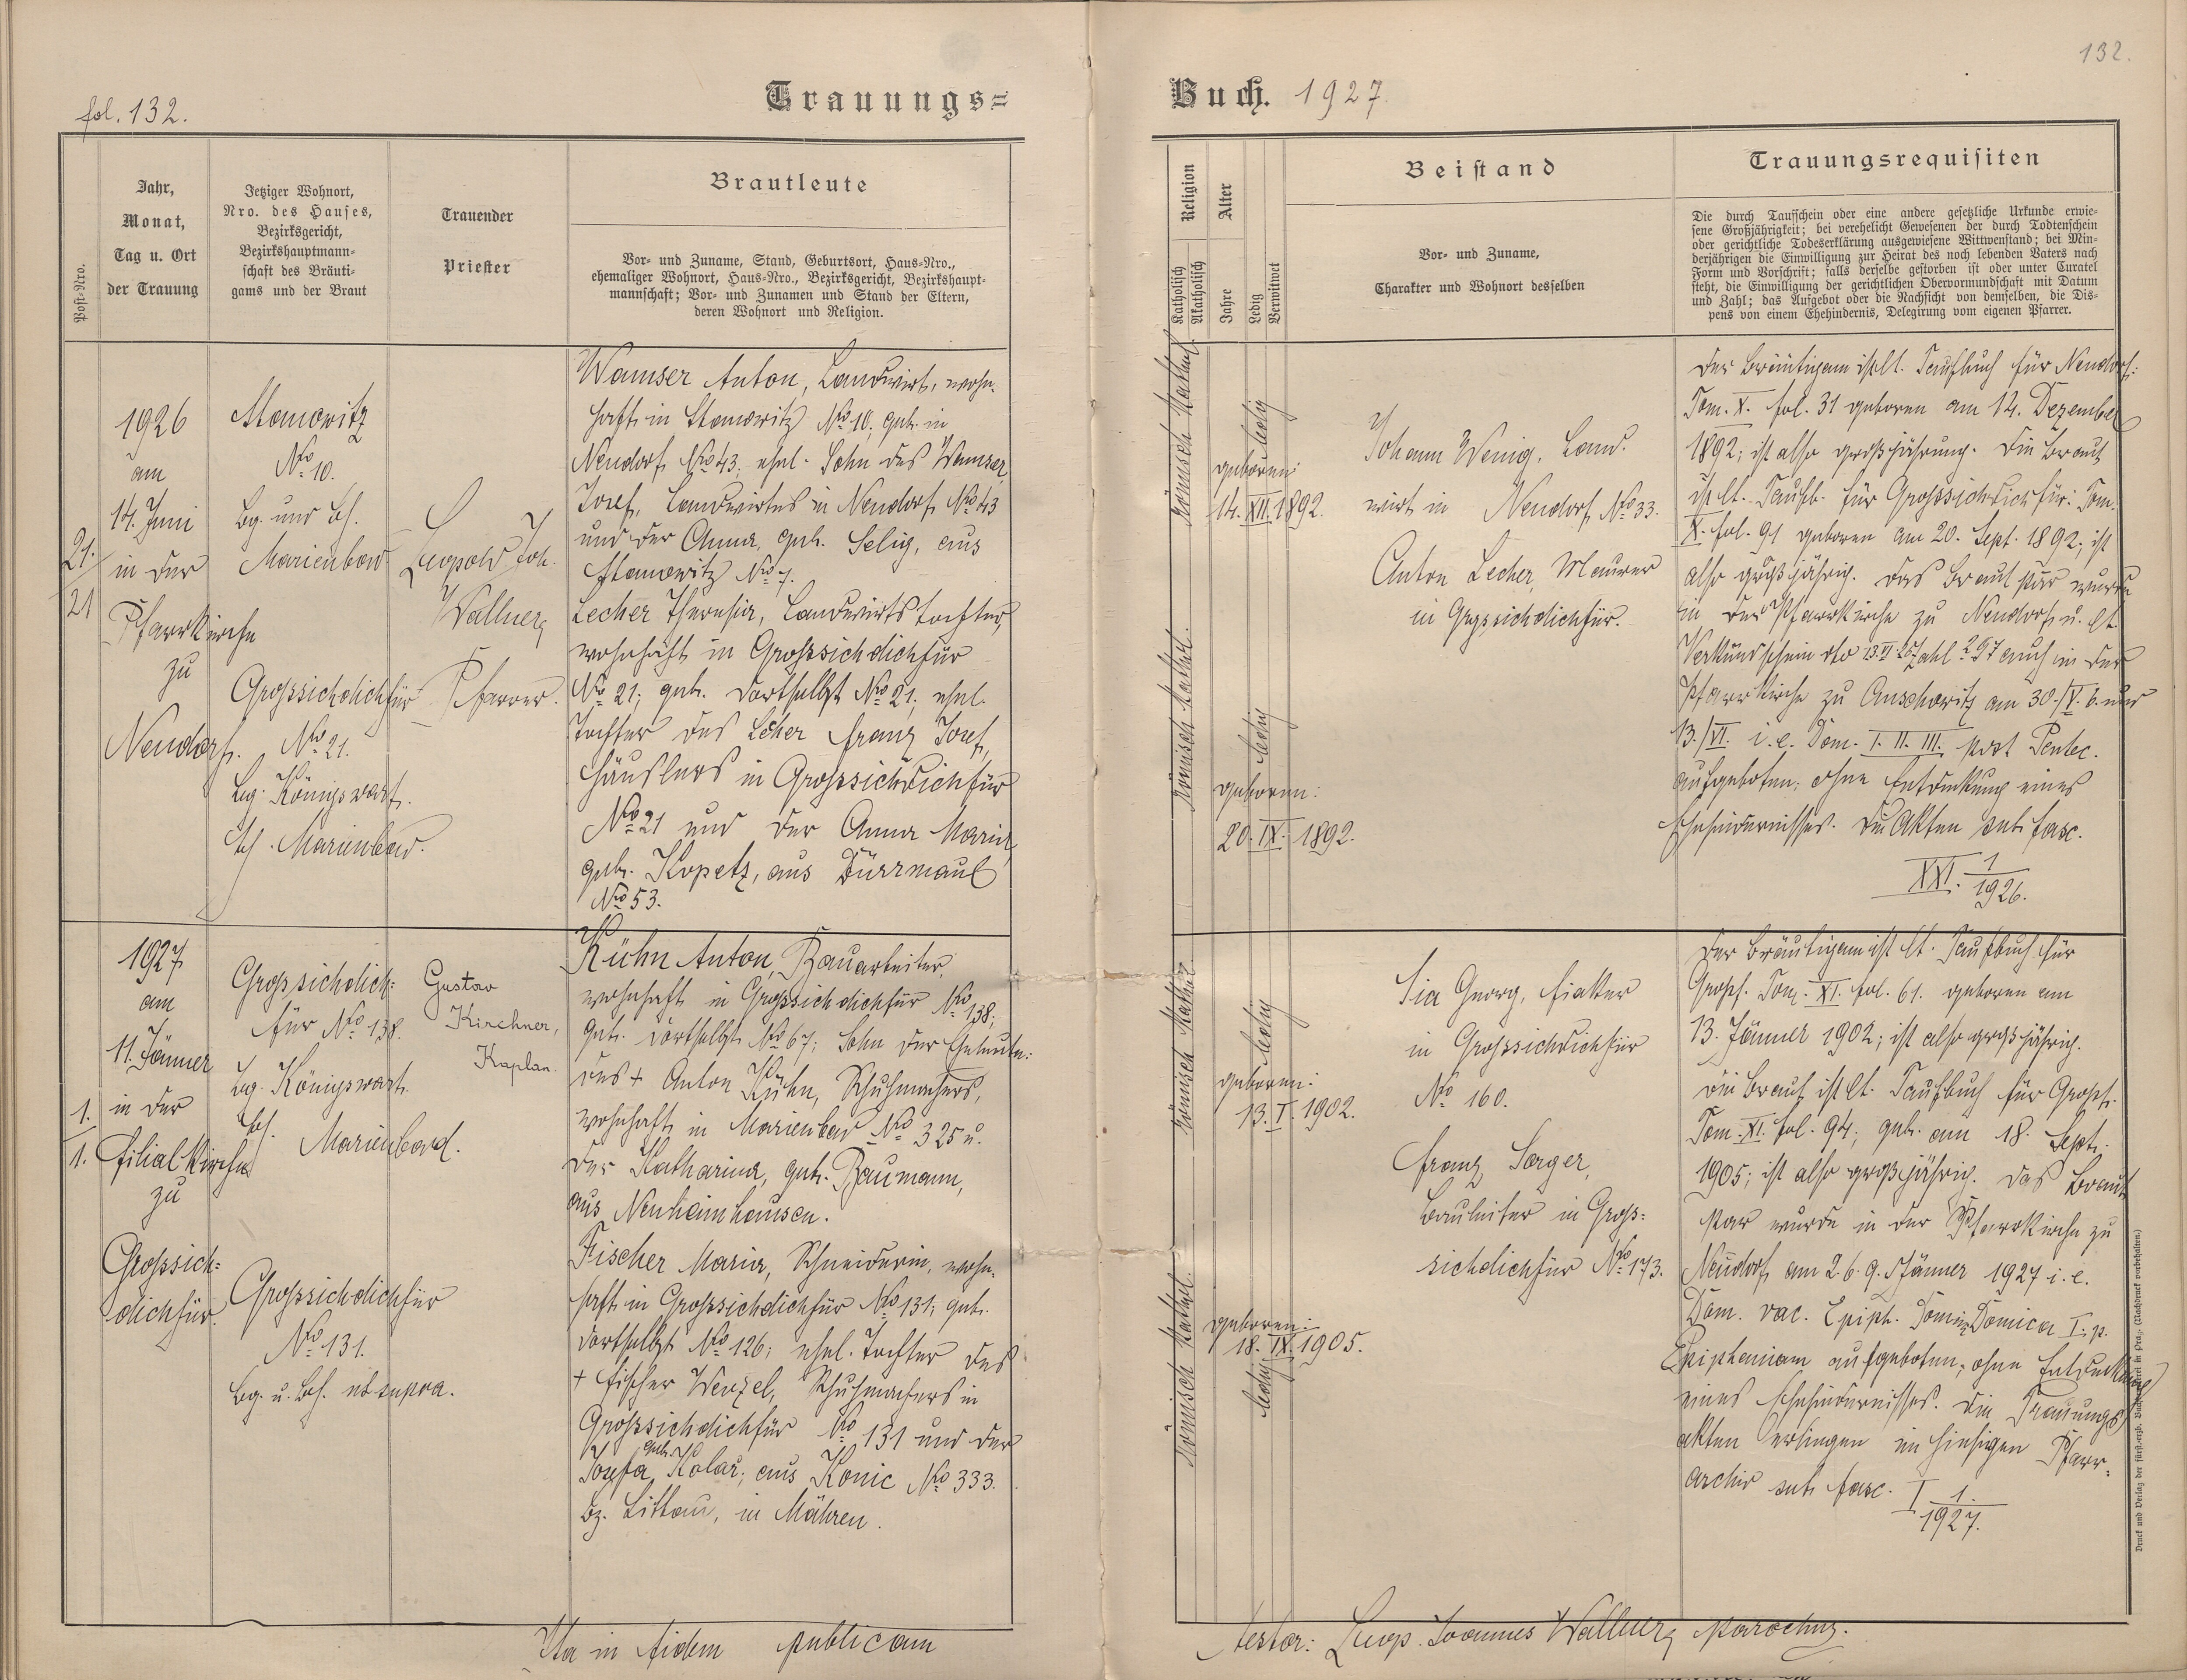 fol. 132.
Trauungs=
Post-Nro.
Jahr,
Monat,
Tag u. Ort
der Trauung
Jetziger Wohnort,
Nro. des Hauses,
Bezirksgericht,
Bezirkshauptmann-
schaft des Bräuti-
gams und der Braut
Trauender
Priester
Brautleute
Vor- und Zuname, Stand, Geburtsort, Haus-Nro.,
ehemaliger Wohnort, Haus-Nro., Bezirksgericht, Bezirkshaupt-
mannschaft; Vor- und Zunamen und Stand der Eltern,
deren Wohnort und Religion.
21.
21
1926
am
14. Juni
in der
Pfarrkirche
zu
Neudorf.
Stanowitz
No 10.
Bg. und Bh.
Marienbad
Grossichdichfür
No 21.
Bg. Königswart.
Bh. Marienbad.
Leopold Joh.
Wallner,
Pfarrer.
Wamser Anton, Landwirt, wohn-
haft in Stanowitz No 10; geb. in
Neudorf No 43; ehel. Sohn des Wamser
Josef, Landwirtes in Neudorf No 43
und der Anna, geb. Selig, aus
Stanowitz No 7.
Lecher Theresia, Landwirtstochter,
wohnhaft in Grossichdichfür
No 21; geb. dortselbst No 21; ehel.
Tochter des Lecher Franz Josef,
Häuslers in Grossichdichfür
No 21 und der Anna Maria,
geb. Kopetz, aus Dürrmaul
No 53.
1.
1.
1927
am
11. Jänner
in der
Filialkirche
zu
Grossich=
dichfür.
Grossichdich=
für No 138.
Bg. Königswart.
Bh. Marienbad.
Grossichdichfür
No 131.
Bg. u. Bh. ut supra.
Gustav
Kirchner,
Kaplan.
Kühn Anton, Bauarbeiter,
wohnhaft in Grossichdichfür No 138;
geb. dortselbst No 67; Sohn der Eheleute:
des + Anton Kühn, Schuhmachers,
wohnhaft in Marienbad No 325 u.
der Katharina, geb. Baumann,
aus Neuheimhausen.
Fischer Maria, Schneiderin, wohn-
haft in Grossichdichfür No 131; geb.
dortselbst No 126; ehel. Tochter des
+ Fischer Wenzel, Schuhmachers in
Grossichdichfür No 131 und der
Josefa geb. Kolař; aus Konic No 333.
Bz. Littau, in Mähren.
Ita in fidem publicam
132.
Buch. 1927
Religion
Katholisch
Akatholisch
Alter
Jahre
Ledig
Verwitwet
Beistand
Vor- und Zuname,
Charakter und Wohnort desselben
Trauungsrequisiten
Die durch Taufschein oder eine andere gesetzliche Urkunde erwie-
sene Großjährigkeit; bei verehelicht Gewesenen der durch Todtenschein
oder gerichtliche Todeserklärung ausgewiesene Wittwenstand; bei Min-
derjährigen die Einwilligung zur Heirat des noch lebenden Vaters nach
Form und Vorschrift; falls derselbe gestorben ist oder unter Curatel
steht, die Einwilligung der gerichtlichen Obervormundschaft mit Datum
und Zahl; das Aufgebot oder die Nachsicht von demselben, die Dis-
pens von einem Ehehindernis, Delegirung vom eigenen Pfarrer.
Römisch kathol.
ledig
geboren:
14. XII. 1892.
Römisch kathol.
ledig
geboren:
20. IX. 1892.
Johann Wenig, Land-
wirt in Neudorf No 33.
Anton Lecher, Maurer
in Grossichdichfür.
Der Bräutigam ist lt. Taufbuch für Neudorf:
Tom. X. fol. 31 geboren am 14. Dezember
1892; ist also großjährig. Die Braut
ist lt. Taufb. für Grossichdichfür: Tom.
X. fol. 91 geboren am 20. Sept. 1892; ist
also großjährig. Das Brautpaar wurde
in der Pfarrkirche zu Neudorf u. lt.
Verkündschein dto 13. VI 26 Zahl 297 auch in der
Pfarrkirche zu Auschowitz am 30./V. 6. und
13./VI. i.e. Dom. I. II. III. post Pentec.
aufgeboten; ohne Entdeckung eines
Ehehindernisses. Die Akten sub fasc.
XXI. 1/1926.
Römisch kathol.
ledig
geboren:
13. I. 1902.
Römisch kathol.
geboren:
18. IX. 1905.
ledig
Sia Georg, Fiaker
in Grossichdichfür
No 160.
Franz Sorger,
Bauleiter in Gross=
sichdichfür No 173.
Der Bräutigam ist lt. Taufbuch für
Gross. Tom. XI. fol. 61. geboren am
13. Jänner 1902; ist also großjährig.
Die Braut ist lt. Taufbuch für Gross.
Tom. XI. fol. 94; geb. am 18. Sept.
1905; ist also großjährig. Das Braut
paar wurde in der Pfarrkirche zu
Neudorf am 2. 6. 9. Jänner 1927 i.e.
Dom. vac. Epiph. Domini, Domica I. p.
Epiphaniam aufgeboten; ohne Entdeckung
eines Ehehindernisses. Die Trauungs
akten erliegen im hiesigen Pfarr-
archiv sub fasc. I 1./1927.
Druck und Verlag der fürst-erzb. Buchdruckerei in Prag. (Nachdruck vorbehalten.)
testor: Leop. Joannes Wallner, parochus.